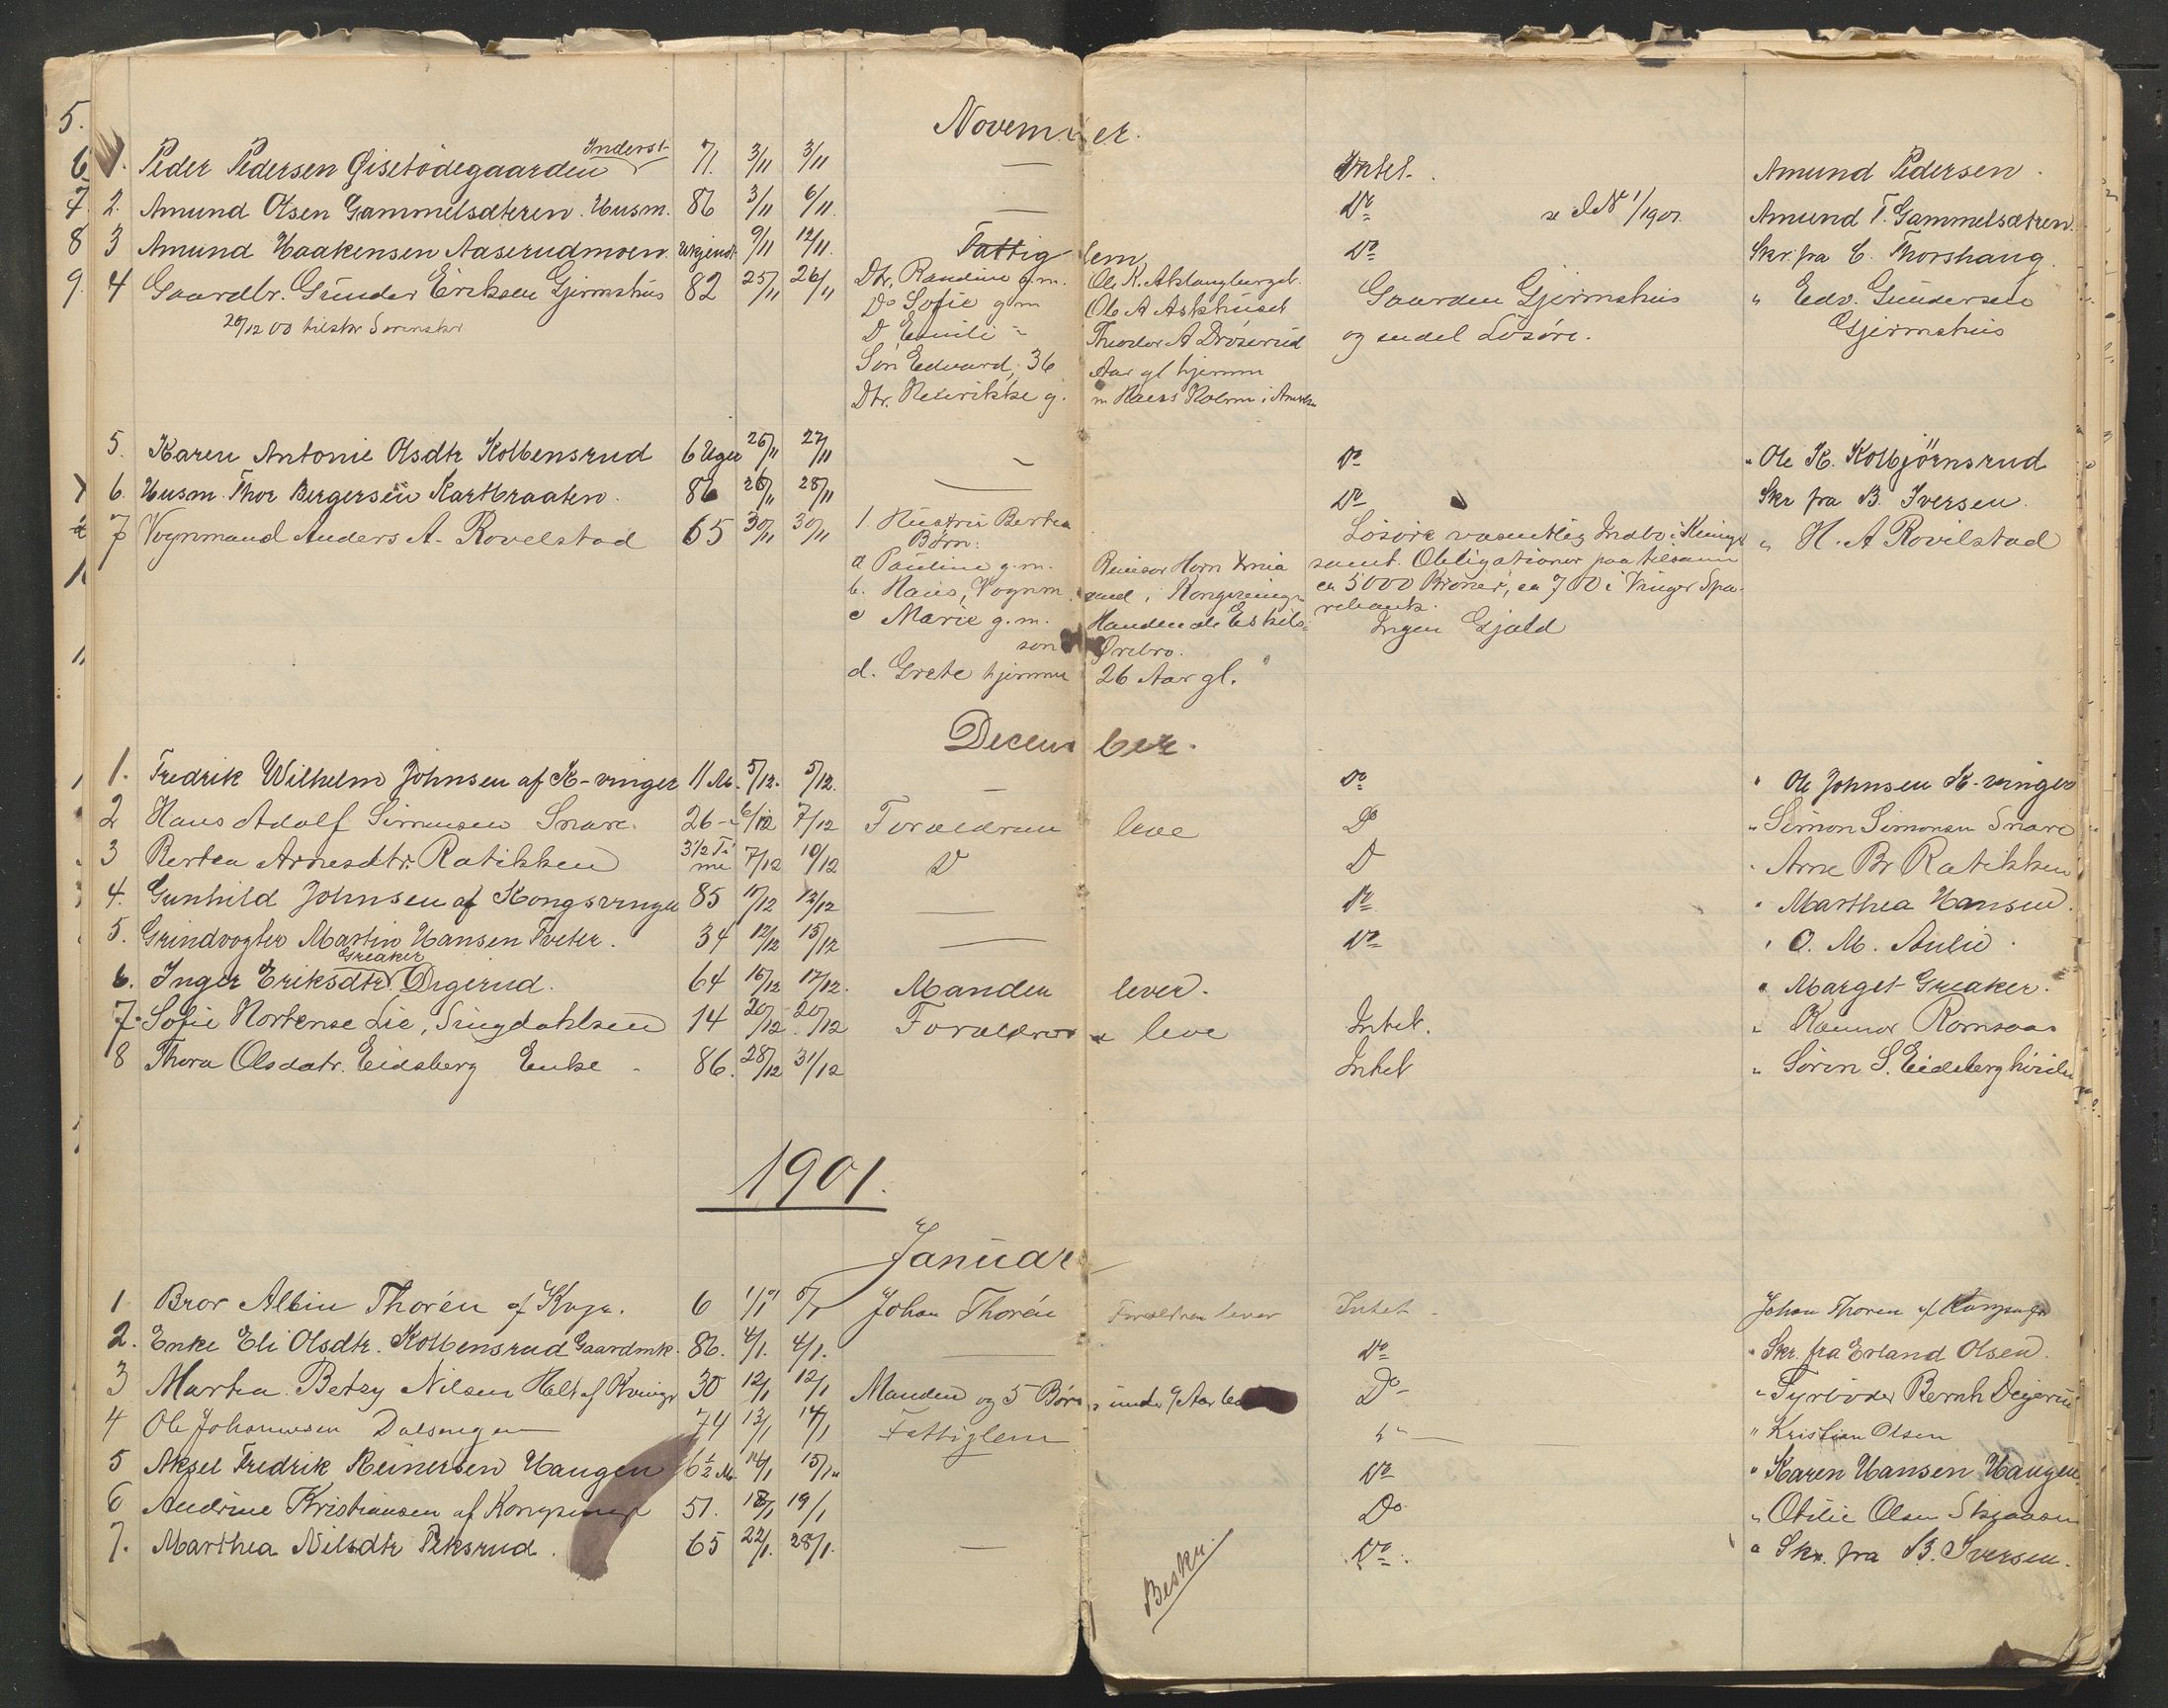 November.
1. Peder Pedersen Gisetødegaarden Inderst 71. 3/11 3/11 — Intet. Amund Pedersen.
2. Amund Olsen Gammelsæteren. Husm. 86 3/11 6/11. — Do 1/1901. Amund T. Gammelsætren.
3 Amund Haakensen Aaserudmoen. Ukjendt 9/11 12/11. Fattiglem Do Skr. fra C. Thorshaug.
4 Gaardbr. Gunder Eriksen Gjermshus 82 25/11 26/11 Dtr. Randine g.m. Ole K. Gaarden Gjermshus " Edv. Gundersen
20/12 00 tilskr Sorenskr Do Sofie g m Ole A Askhuset og endel Løsøre. Gjermshus
D Emili " Theodor A Drøserud
Søn Edvard, 36 Aar gl hjemme
Dtr. Henrikke g. m Hans Holm i Amerika
5. Karen Antonie Olsdtr Kolbensrud 6 Uger 26/11 27/11 — Do " Ole K. Kolbjörnsrud
6. Husm. Thor Bergersen Kartbraaten. 86 26/11 28/11 — Do Skr fra B. Iversen.
7 Vognmand Anders A. Rovelstad 65 30/11 30/11 1. Hustru Bertea Løsøre væsentlig Indbo i Kvinger " H. A Rovelstad
Børn: samt Obligationer paa tilsamm
a Pauline g.m. Reinsar Horn ca 5000 Kroner, ca 700 i Vinger Spa-
b. Hans, Vognmand i Kongsvinger rebank.
c Marie g.m. Handlende Eskils- Ingen Gjæld
son Ørebro.
d. Grete hjemme 26 Aar gl.
December.
1. Fredrik Wilhelm Johnsen af K-vinger 11 M. 5/12. 5/12. — Do " Ole Johnsen K-vinger
2 Hans Adolf Simensen Snare. 26 - 6/12 7/12 Forældrene leve Do " Simon Simonsen Snare
3 Bertea Arnesdtr. Ratikken 3 1/2 Ti me 7/12 10/12 D D " Arne Br Ratikken
4. Gunhild Johnsen af Kongsvinger 85 11/12 12/12 — Do " Marthea Hansen.
5. Grindvogter Martin Hansen Tveter. 34 12/12 15/12 — Do " O. M. Aulie.
6. Inger Eriksdtr. Greaker Digerud. 64 16/12 17/12. Manden lever. " Marget Greaker.
7. Sofie Hortense Lie, Singdahlsen 14 20/12 20/12 Forældrene leve Intet. " Romsaas
8 Thora Olsdatr. Eidsberg Enke 86. 28/12 31/12 Intet " Sören S. Eidsberg
1901.
Januar
1 Bror Albin Thorén af Kvgr. 6 1/1 5/1 Johan Thorén Forældrene lever Intet Johan Thoren af Kongsvgr
2. Enke Eli Olsdtr. Kolbensrud Gaardmk. 86. 4/1. 4/1. — Do " Skr. fra Erland Olsen.
3 Martea Betzy Nilsen Holt af Kvinger 30 12/1 12/1 Manden og 5 Børn under 9 Aar Do " Fyrbøder Bernh Deigerud
4 Ole Johannesen Dalsengen 74 13/1 14/1 Fattiglem " — " Kristian Olsen
5 Aksel Fredrik Reinertsen Haugen 6 1/2 M. 14/1 15/1 Do " Karen Hansen Haugen
6 Andrine Kristiansen af Kongsvinger 51. 18/1 19/1 Do " Otilie Olsen Skjaasen
7. Marthea Nilsdtr Peksrud. 65 22/1. 28/1. — Do. " Skr. fra B. Iversen.
Beskr.